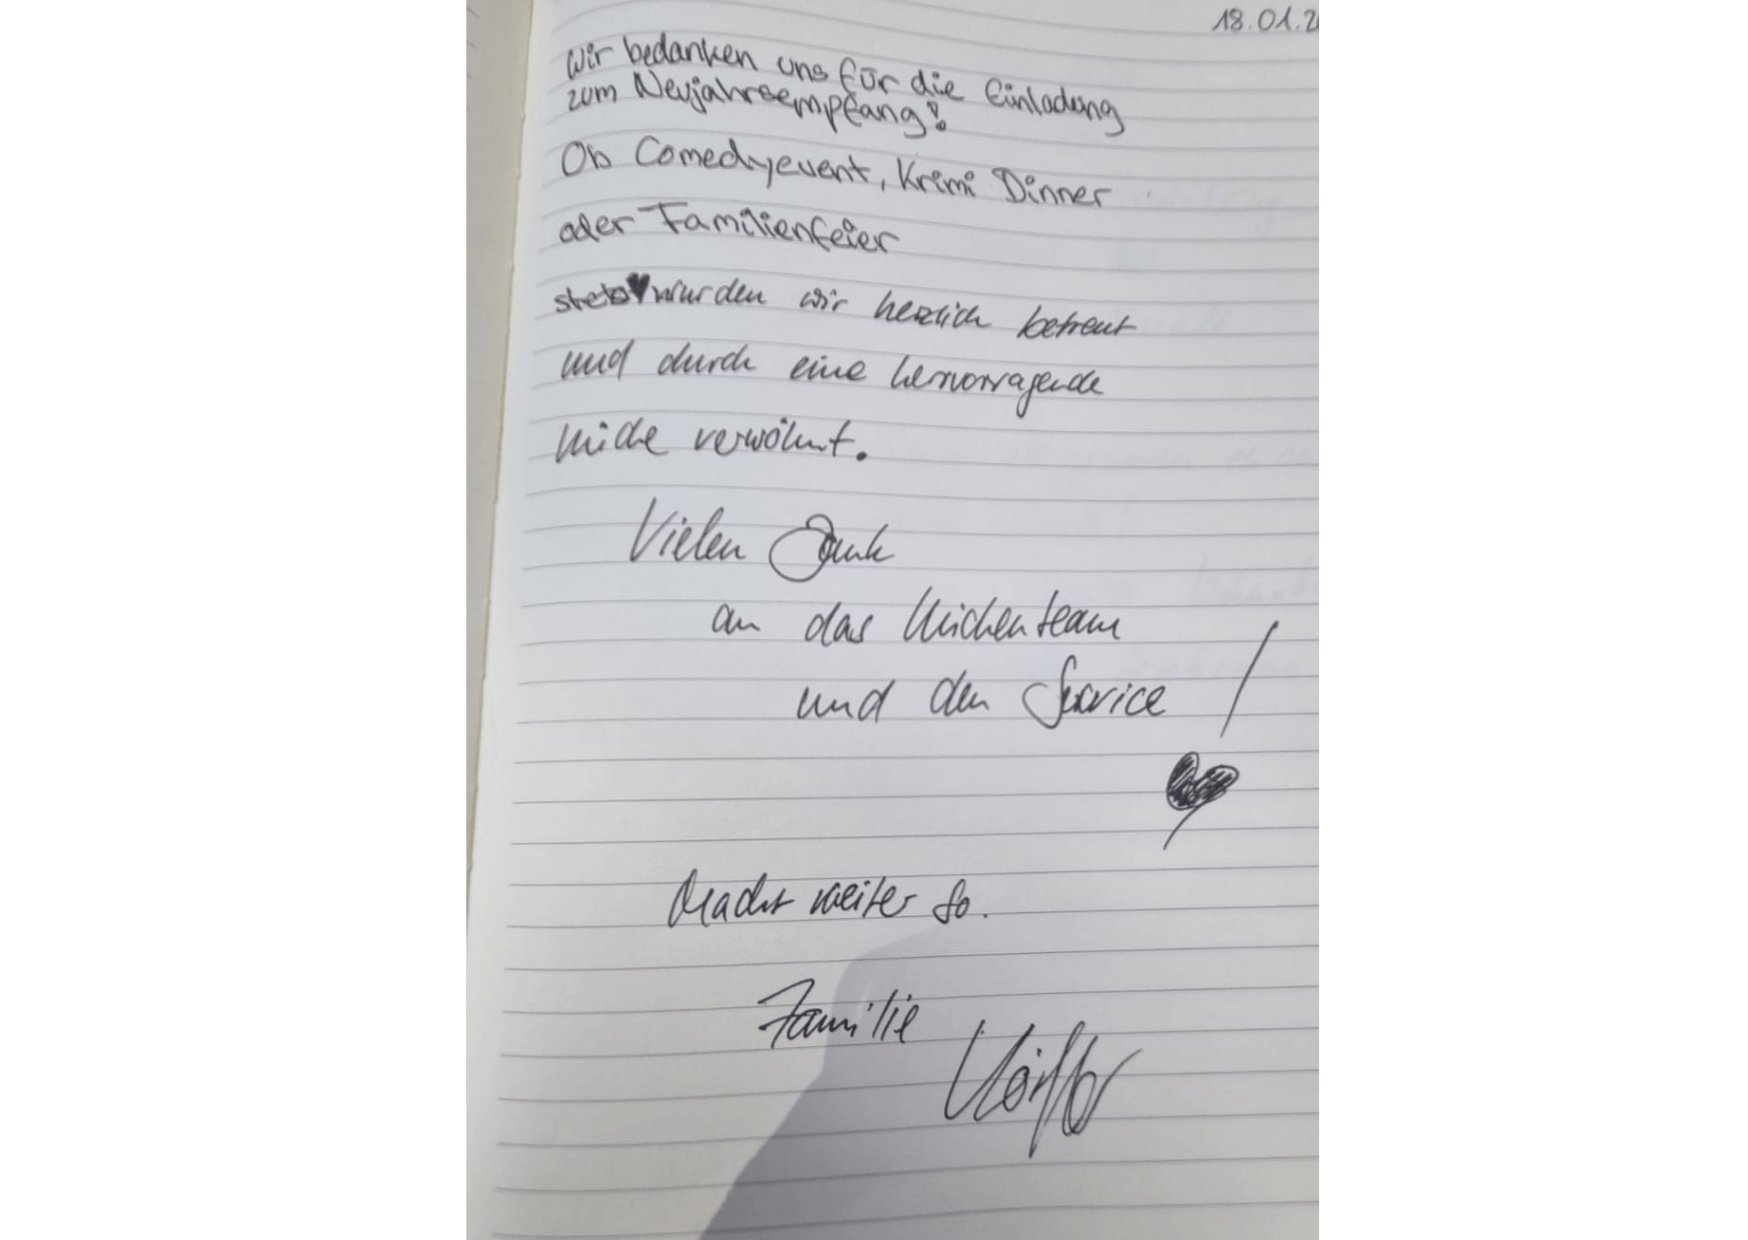 18.01.2
Wir bedanken uns für die Einladung
zum Neujahrsempfang!
Ob Comedyevent, Krimi Dinner
oder Familienfeier
stets♥wurden wir herzlich betreut
und durch eine hervorragende
Küche verwöhnt.
Vielen Dank
an das Küchenteam
und den Service!
♥
Macht weiter so.
Familie